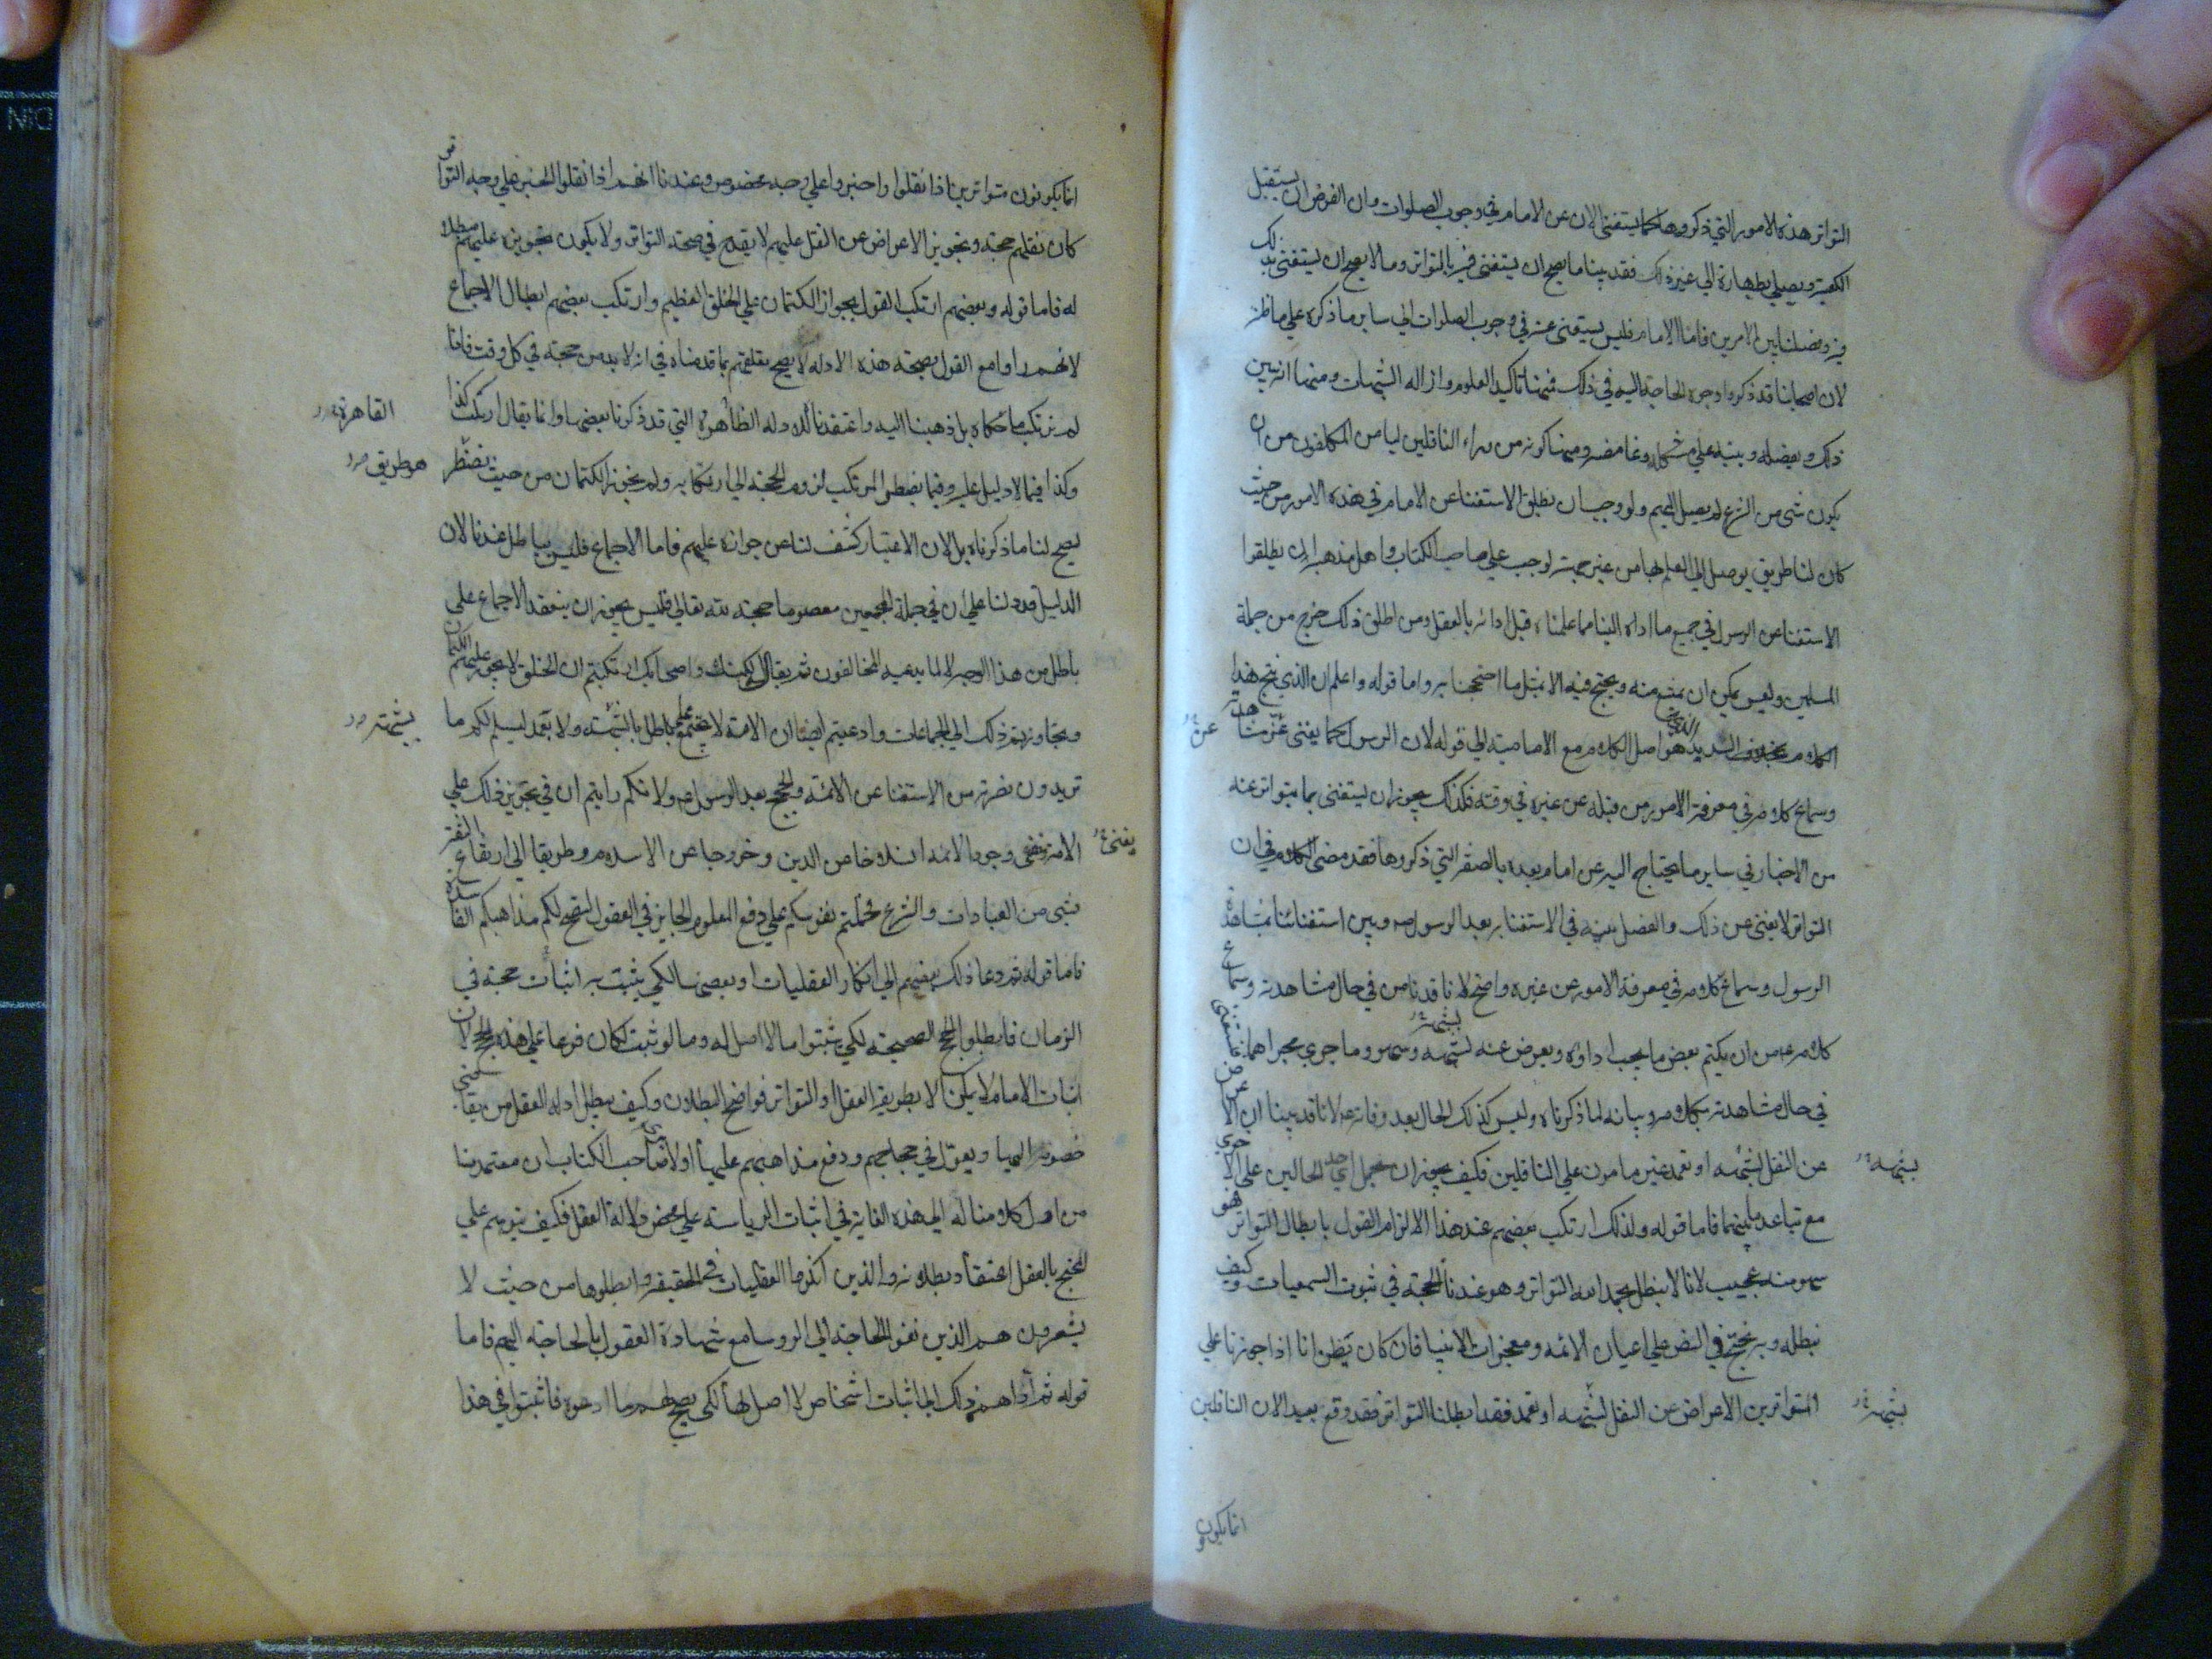 التواتر هذه الامور التي ذكروها كما يستغنى الان عن الامام في وجوب الصلوات وان الفرض ان يستقبل
الكعبة ويصلي بطهارة الي غير ذلك فقد بينا ما يصح ان يستغنى فيه بالتواتر وما لا يصح ان يستغنى بذلك
فيه وفصلنا بين الامرين فاما الامام فليس يستغنى عنه في وجوب الصلوات الي ساير ما ذكره علي ما ظن
لان اصحابنا قد ذكروا وجوه الحاجة اليه في ذلك فمنها تاكيد العلوم وازاله الشبهات ومنها انه يبين
ذلك ويفصله وينبه علي مشكله وغامضه ومنها كونه من وراء الناقلين ليامن المكلفون من ان
يكون شي من الشرع لم يصل اليهم ولو وجب ان نطلق الاستغنا عن الامام في هذه الامور من حيث
كان لنا طريق يوصل الي العلم بها من غير جهته لوجب علي صاحب الكتاب واهل مذهبه ان يطلقوا
الاستغنا عن الرسول في جميع ما اداه الينا مما علمناه قبل ادائه بالعقل ومن اطلق ذلك خرج من جملة
المسلمين وليس يمكن ان يمتنع منه ويحتج فيه الا بمثل ما احتججنا به واما قوله واعلم ان الذي ينتج هذا
الكلام هو اصل الكلام مع الامامية الي قوله لان الرسول كما يغنى عن مشاهدته
وسماع كلامه في معرفة الامور من قبله عن غيره في وقته فكذلك يجوز ان يستغنى بما يتواتر عنه
من الاخبار في ساير ما يحتاج اليه عن امام بعده بالصفة التي ذكروها فقد مضى الكلام في ان
التواتر لا يغنى عن ذلك والفصل بينه في الاستغنا به بعد الرسول ص وبين استغنائنا بمشاهدة
الرسول وسماع كلامه في معرفة الامور عن غيره واضح لانا قد نامن في حال مشاهدته وسماع
كلامه من ان يكتم بعض ما يجب اداؤه ويعرض عنه لشبهه وسهو وما جري مجراهما فنستغنى
في حال مشاهدته بكلامه وبيانه لما ذكرناه وليس كذلك الحال بعد وفاته لانا قد بينا ان الاعراض
عن النقل لشبهه او تعمد غير مامون علي الناقلين فكيف يجوز ان يحمل احدي الحالين علي الاخرى
مع تباعد ما بينهما فاما قوله ولذلك ارتكب بعضهم عند هذا الالزام القول بابطال التواتر فهو
سهو منه عجيب لانا لا نبطل بحمد الله التواتر وهو عندنا الحجة في ثبوت السمعيات وكيف
نبطله وبه نحتج في النص علي اعيان الائمه ومعجزات الانبيا فان كان يظن انا اذا جوزنا علي
المتواترين الاعراض عن النقل لشبهه او تعمد فقد ابطلنا التواتر فقد وقع بعيدا لان الناقلين
انما يكون
عن
بشبهه
بشبهه
انما يكونون متواترين اذا نقلوا واخبروا علي وجه مخصوص وعندنا انهم اذا نقلوا الخبر علي وجه التواتر
كان نقلهم حجة وتجويز الاعراض عن النقل عليهم لا يقدح في صحة التواتر ولا يكون تجويزه عليهم مبطلا
له فاما قوله وبعضهم ارتكب القول بجواز الكتمان علي الخلق العظيم وارتكب بعضهم ابطال الاجماع
لانهم راوا مع القول بصحة هذه الادله لا يصح تعلقهم بما قدمناه في انه لا بد من حجة في كل وقت فانا
لم نرتكب ما حكاه بل ذهبنا اليه واعتقدناه للادله الظاهرة التي قد ذكرنا بعضها وانما يقال ارتكب كذا
وكذا فيما لا دليل عليه وفيما يضطر المرتكب لزوم الحجة الي ارتكابه ولم نجوز الكتمان من حيث نضطر
يصح لنا ما ذكرناه بل لان الاعتبار كشف لنا عن جوازه عليهم فاما الاجماع فليس بباطل عندنا لان
الدليل قد دلنا علي ان في جملة المجمعين معصوما حجة لله تعالي فليس يجوز ان ينعقد الاجماع علي
باطل من هذا الوجه لا لما يدعيه المخالفون ثم يقال له كانك واصحابك ارتكبتم ان الخلق لا يجوز عليهم الكتمان
وتجاوزتم ذلك الي الجماعات وادعيتم ايضا ان الامة لا تجتمع علي باطل بالشبهه ولا تعمد ليسلم لكم ما
تريدون نصرته من الاستغنا عن الائمه والحجج بعد الرسول ص ولانكم رايتم ان في تجويز ذلك علي
الامة ونفى وجود الائمه انسلاخا من الدين وخروجا عن الاسلام وطريقا الي ارتفاع الثقة
بشي من العبادات والشرع فحملتم نفوسكم علي دفع المعلوم الجايز في العقول لتصح لكم مذاهبكم الفاسدة
فاما قوله ثم دعا ذلك بعضهم الي انكار العقليات او بعضها لكي يثبت به اثبات حجة في
الزمان فابطلوا الحجج الصحيحة لكي يثبتوا ما لا اصل له وما لو ثبت لكان فرعا علي هذه الحجج لان
اثبات الامام لا يمكن الا بطريق العقل او التواتر فواضح البطلان وكيف يبطل ادله العقل من يقاضي
خصومه اليها ويعول في حجاجهم ودفع مذاهبهم عليها اولا يرى صاحب الكتاب ان معتمدنا
من اول كلامنا له الي هذه الغاية في اثبات الرياسة علي محض دلالة العقل فكيف يتوهم علي
المحتج بالعقل اعتقاد بطلانه والذين انكروا العقليات في الحقيقة وابطلوها من حيث لا
يشعرون هم الذين نفوا الحاجة الي الروسا مع شهادة العقول بالحاجة اليهم فاما
قوله ثم اداهم ذلك الي اثبات اشخاص لا اصل لها لكي يصح لهم ما ادعوه فاثبتوا في هذا
القاهرة
هو طريق
بشبهه